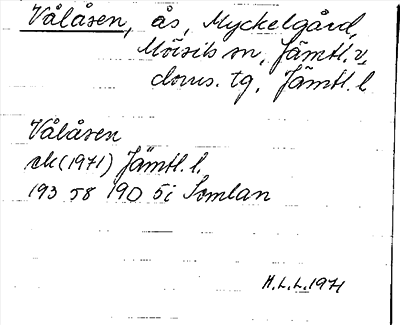 Vålåsen, ås, Myckelgård,
Mörsils sn, Jämtl. v,
doms. tg, Jämtl. l
Vålåsen
ek (1971) Jämtl. l.
193 58 190 5i Somlan
H.L.L. 1971